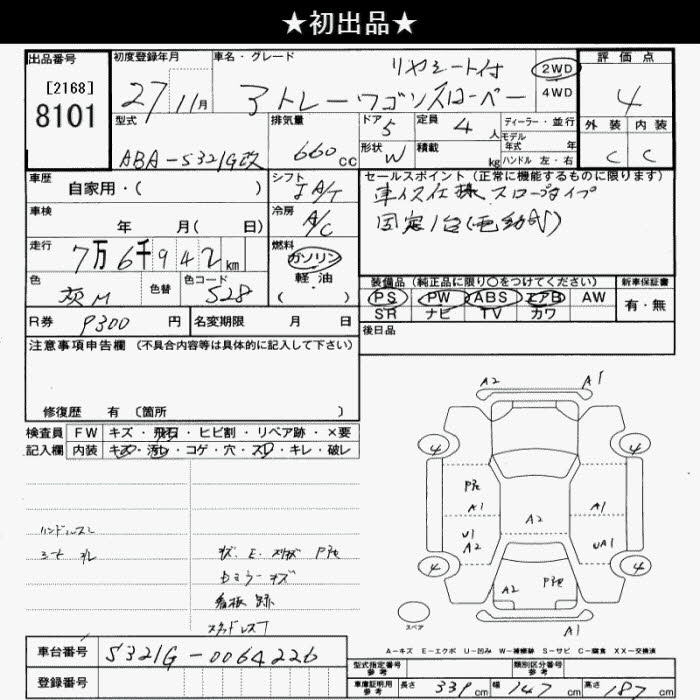 ★初出品★
出品番号
[2168]
8101
初度登録年月
27 11月
車名・グレード
リヤシート付
アトレーワゴンスローパー
2WD
4WD
評価点
4
外装 内装
C C
型式
ABA-S321G改
排気量
660 cc
ドア 5
形状 W
定員 4 人
積載 kg
ディーラー・並行
モデル年式 年
ハンドル 左・右
車歴
自家用・( )
シフト
IA/T
セールスポイント(正常に機能するものに限ります)
車イス仕様 スロープタイプ
固定1台(電動式)
車検
年 月( 日)
冷房
A/C
走行
7万6千942km
燃料
ガソリン
軽・油
( )
色
色替
色コード
S28
装備品(純正品に限り○をつけてください)
PS PW ABS エアB AW
SR ナビ TV カワ
新車保証書
有・無
R券 9300 円
名変期限 月 日
後日品
注意事項申告欄(不具合内容等は具体的に記入して下さい)
修復歴 有(箇所 )
検査員記入欄
FW キズ・飛石・ヒビ割・リペア跡・×要
内装 キズ・汚れ・コゲ・穴・スレ・キレ・破レ
ハンドルスレ
シートスレ
キズ
看板跡
スタッドレス
A2 A1
4 4
A1 A1
A2
U1
A2
UA1
4 4
A2
A1
スペア
A-キズ E-エクボ U-凹み W-補修跡 S-サビ C-腐食 XX-交換済
車台番号 S321G-0064226
登録番号
型式指定番号
参考
類別区分番号
参考
車庫証明用
参考
長さ 339cm 幅 147cm 高さ 187cm